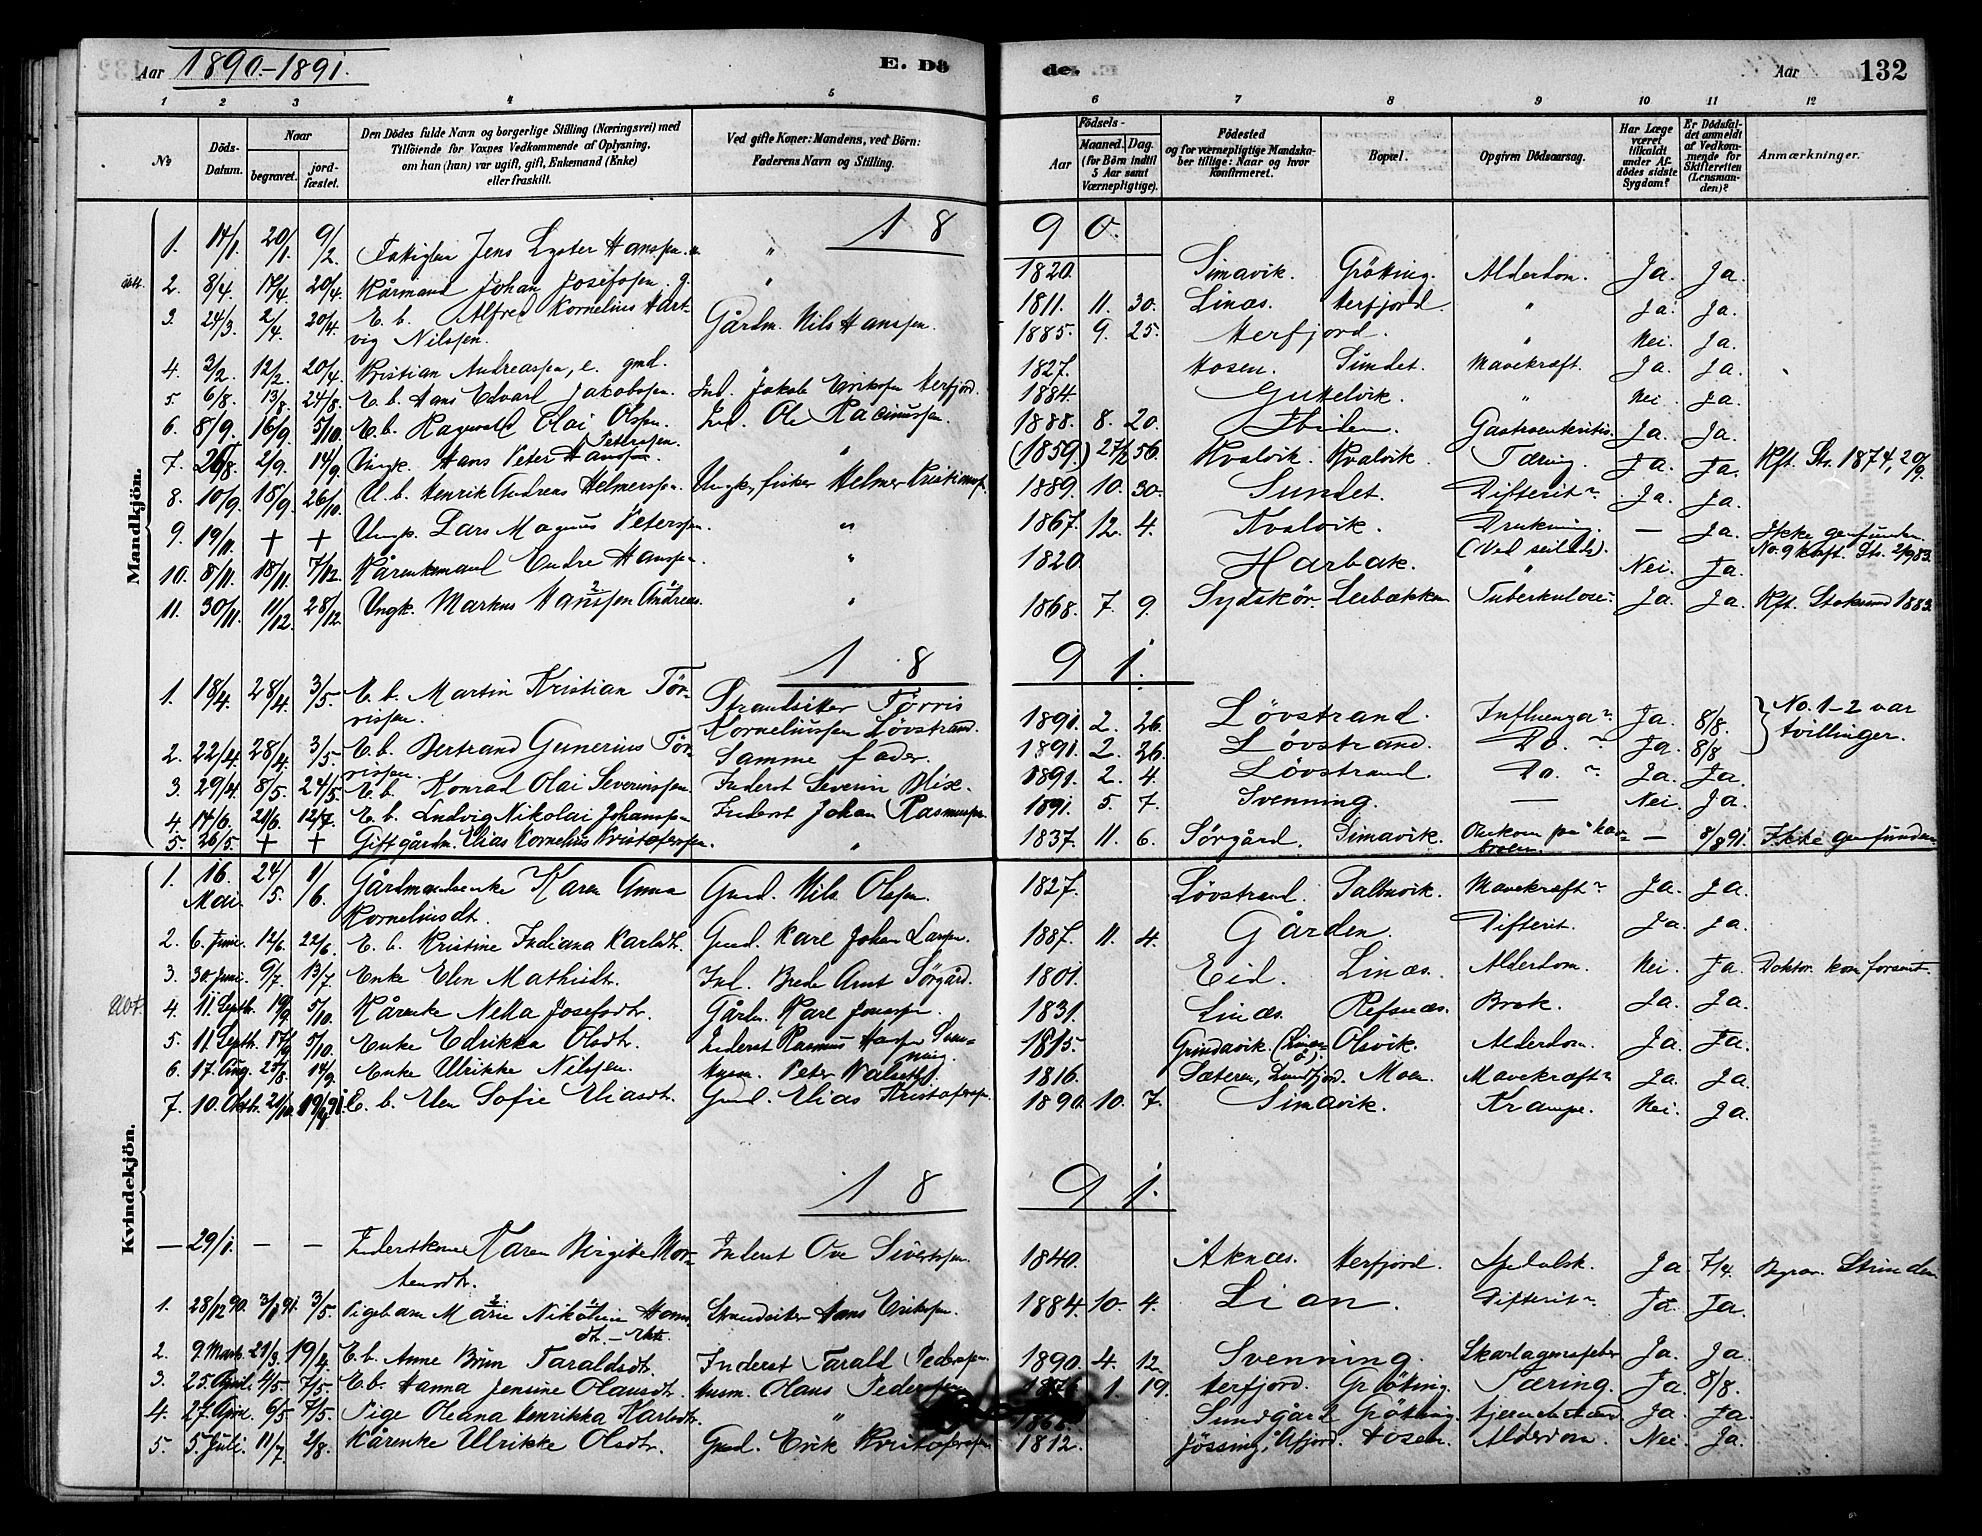 Aar 1890-1891.
E. Döde.
Aar
132
1 2 3 4 5 6 7 8 9 10 11 12
No
Döds-Datum.
Naar
begravet.
jordfæstet.
Den Dödes fulde Navn og borgerlige Stilling (Næringsvei) med
Tilföiende for Voxnes Vedkommende af Oplysning,
om han (hun) var ugift, gift, Enkemand (Enke)
eller fraskilt.
Ved gifte Koner: Mandens, ved Börn:
Faderens Navn og Stilling.
Födsels-
Aar
Maaned. Dag.
(for Börn indtil
5 Aar samt
Værnepligtige).
Födested
og for værnepligtige Mandskaber tillige: Naar og hvor
Konfirmeret.
Bopæl.
Opgiven Dödsaarsag.
Har Læge
været
tilkaldt
under Afdödes sidste
Sygdom?
Er Dödsfaldet anmeldt
af Vedkommende for
Skifteretten
(Lensmanden)?
Anmærkninger.
Mandkjön.
18 90.
1. 14/1. 20/1. 9/2 Fattiglem Jens Lyster Hanssen. " 1820. Simavik. Gröting. Alderdom. Ja. Ja.
2. 8/4. 17/4. 20/4. Kårmand Johan Josefsen, g. " 1811. 11. 30. Linæs. Herfjord. " Ja. Ja.
3. 24/3. 2/4. 20/4. E. b. Alfred Kornelius Hart-
vig Nilssen. Gårdm. Nils Hanssen. 1885. 9. 25. Herfjord. " Nei. Ja.
4. 3/2. 12/2. 20/4. Kristian Andreassen, e. gmd. " 1827. Hosen. Sundet. Mavekræft. Ja. Ja.
5. 6/8. 13/8. 24/8. E. b. Hans Edvard Jakobsen. Ind. Jakob Eriksen Herfjord. 1884. Gukelvik. " Nei. Ja.
6. 8/9. 16/9. 5/10. E. b. Ragnvald Olai Olsen. Ind. Ole Rasmussen. 1888. 8. 20. Ibidem. Ja. Ja.
7. 26/8. 2/9. 14/9. Ungk. Hans Peter Petersen. " (1859.) 27/2 56. Kvalvik. Kvalvik. Tæring. Ja. Ja. Kft. Sts. 1874, 20/9.
8. 10/9. 18/9. 26/10. U. b. Henrik Andreas Helmerssen. Ungk., fisker Helmer Kristianss. 1889. 10. 30. Sundet. Difterit. Ja. Ja.
9. 19/11. + + Ungk. Lars Magnus Peterssen. " 1867. 12. 4. Kvalvik. Drukning. (Ved seilads). — Ja. Ikke genfunden. No. 9 kft. Sts. 2/9 83.
10. 8/11. 18/11. 7/12. Kårenkemand Endre Hanssen. " 1820. Harbak. " Nei. Ja.
11. 30/11. 11/12. 28/12. Ungk. Markus Hanssen Andreas. " 1868. 7. 9. Sydskör. Leebækken Tuberkulose. Ja. Ja. Kft. Stoksund 1883.
18 91.
1. 18/4. 28/4. 3/5. E. b. Martin Kristian Tör-
rissen. Strandsitter Törris
Korneliussen Lövstrand. 1891. 2. 26. Lövstrand. Influenza. Ja. 8/8. No. 1-2 var
tvillinger.
2. 22/4. 28/4. 3/5. E. b. Bertrand Gunerius Tör-
rissen. Samme fader. 1891. 2. 26. Lövstrand. Do. Ja. 8/8
3. 29/4. 8/5. 24/5. E. b. Konrad Olai Severinssen. Inderst Severin Blix. 1891. 2. 4. Lövstrand. Do. Ja. Ja.
4. 14/6. 21/6. 12/7. E. b. Ludvig Nikolai Johanssen Inderst Johan Rasmussen 1891. 5. 7. Svenning. — Nei. Ja.
5. 26/5. + + Gift gårdm. Elias Kornelius Kristofersen. " 1837. 11. 6. Sörgård. Simavik. Omkom på — 8/8 91. Ikke genfunden
Kvindekjön.
1. 16. Mai. 24/5. 1/6. Gårdmandsenke Karen Anna
Korneliusdt. Gmd. Nils Olsen. 1827. Lövstrand. Mavekræft. Ja. Ja.
2. 6. Juni. 12/6. 22/6. E. b. Kristine Indiana Karlsdt. Gmd. Karl Johan Larsen. 1887. 11. 4. Gården. Difterit. Ja. Ja.
3. 30. Juni. 9/7. 13/7. Enke Elen Mathisdt. Ind. Brede Arnt Sörgård. 1801. Eid. Linæs. Alderdom. Nei. Ja. Doktor kom forsent.
4. 11. Septb. 19/9. 5/10. Kårenke Nella Josefsdt. Gårdm. Karl Jonssen. 1831. Linæs. Refsnæs. Brok. Ja. Ja.
5. 11. Septb. 17/9. 5/10. Enke Edrikka Olsdt. Inderst Rasmus Hansen Sven-
ning. 1815. Grindavik. Olsvik. Alderdom. Ja. Ja.
6. 17. Aug. 25/8. 14/9. Enke Ulrikke Nilsen. Husm. Peter 1816. Sæteren, Moen. Mavekræft. Ja. Ja.
7. 10. Oktb. 21/10. 19/4 91. E. b. Elen Sofie Eliasdt. Gmd. Elias Kristofersen 1890. 10. 7. Simavik. Krampe. Nei. Ja.
18 91.
— 29/1. — — Inderstkone Karen Birgitte Mor-
tensdt. Inderst Ove Sivertssen. 1840. Åknæs. Herfjord. Spedalsk. Ja 7/4. Begrav. Strinden
1. 28/12 90. 3/1 91. 3/5. Pigebarn Marie Nikoline Hans-
dt. – Ekte. Strandsitter Hans Eriksen. 1884. 10. 4. Lian. Difterit. Ja. Ja.
2. 9 Marts. 21/3. 19/4. E. b. Anne Brun Taraldsdt. Inderst Tarald Pederssen. 1890. 4. 12. Svenning. Skarlagensfeber Ja. Ja.
3. 25. April. 4/5. 7/5. E. b. Hanna Jensine Olausdt. Husm. Olaus Pederssen 1. 19. Herfjord. Gröting. Tæring. Ja. 8/8.
4. 27. April. 6/5. 7/5. Pige Oleana Henrikka Karlsdt. " Sundgård Gröting. Ja. Ja.
5. 5. Juli. 11/7. 2/8. Kårenke Ulrikke Olsdt. Gmd. Erik Kristofersen 1812. Jössing, Åfjord. Hosen. Alderdom. Nei. Ja.